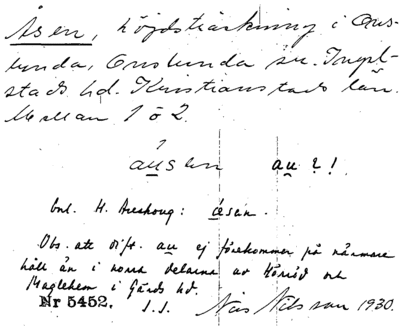 Åsen, höjdsträckning i Ons-
lunda, Onslunda sn. Ingel-
stads hd. Kristianstads län.
Mellan 1 o 2.
áu̲sen au̲ ? !
enl. H. Areskoug: áͅsan.
Obs. att dift. au̲ ej förekommer på närmare
håll än i norra delarna av Hörröd och
Maglehem i Gärds hd.
Nr 5452. I.I. Nils Nilsson 1930.